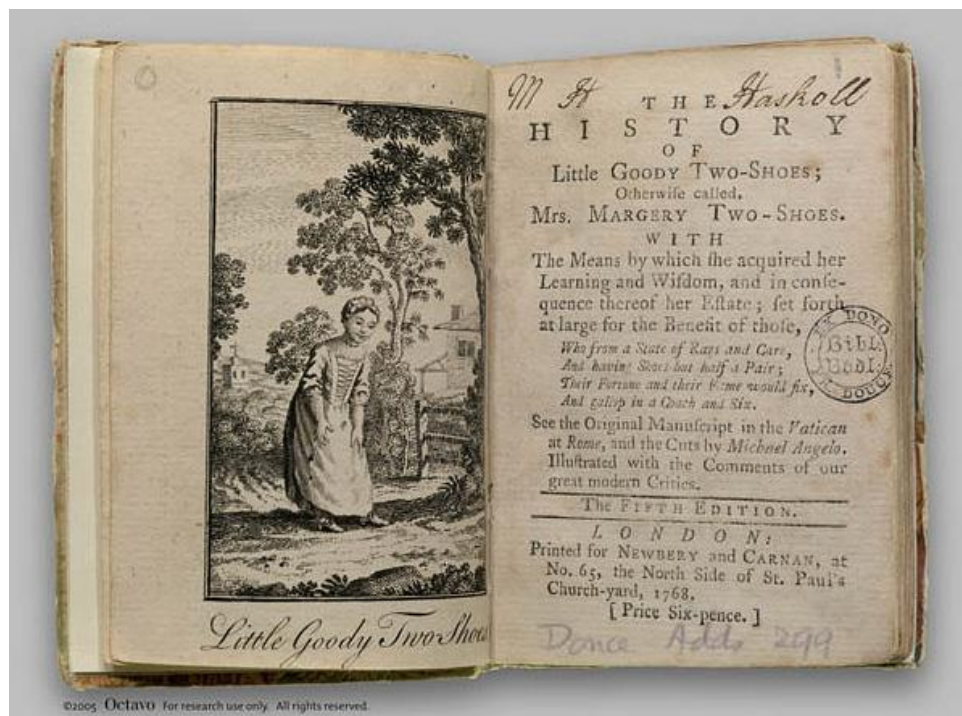 Little Goody Two Shoes
M H Haskoll
THE
HISTORY
OF
Little GOODY TWO-SHOES;
Otherwiſe called,
Mrs. MARGERY TWO-SHOES.
WITH
The Means by which ſhe acquired her
Learning and Wiſdom, and in conſe-
quence thereof her Eſtate; ſet forth
at large for the Benefit of thoſe,
Who from a State of Rags and Care,
And having Shoes but half a Pair;
Their Fortune and their Fame would fix,
And gallop in a Coach and Six.
See the Original Manuſcript in the Vatican
at Rome, and the Cuts by Michael Angelo.
Illuſtrated with the Comments of our
great modern Critics.
The FIFTH EDITION.
LONDON:
Printed for NEWBERY and CARNAN, at
No. 65, the North Side of St. Paul's
Church-yard, 1768.
[Price Six-pence.]
EX DONO
Bibl.
Bodl.
DOUCE
Douce Adds 299
©2005 Octavo For research use only. All rights reserved.